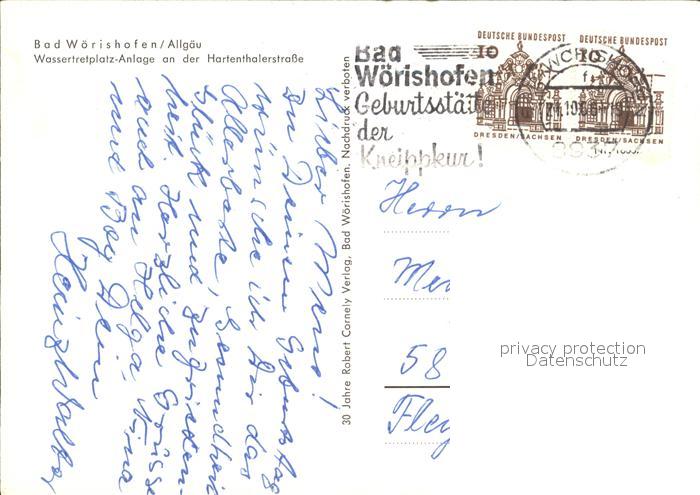 Bad Wörishofen/Allgäu
Wassertretplatz-Anlage an der Hartenthalerstraße
Lieber Menne!
Zu Deinem Geburtstag
wünsche ich Dir das
Allerbeste, Gesundheit
Glück und Zufrieden-
heit. Herzliche Grüsse
auch an Helga, Nina
und Boy Dein
Heinz Walter
30 Jahre Robert Cornely Verlag, Bad Wörishofen. Nachdruck verboten
Bad
Wörishofen
Geburtsstätte
der
Kneippkur!
DEUTSCHE BUNDESPOST
10
DRESDEN/SACHSEN
DEUTSCHE BUNDESPOST
10
DRESDEN/SACHSEN
Herrn
58
privacy protection
Datenschutz